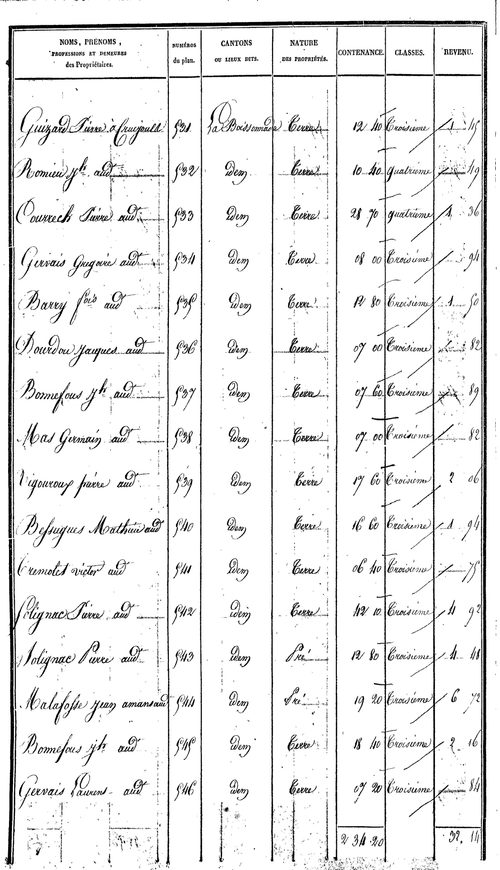 NOMS, PRÉNOMS, PROFESSIONS ET DEMEURES des Propriétaires. NUMÉROS du plan. CANTONS OU LIEUX DITS. NATURE DES PROPRIÉTÉS. CONTENANCE. CLASSES. REVENU.
Guizard Pierre à Cruejouls 531 La Boissonnade Terre 12 40 Troisième 1 45
Romieu Jh aud 532 idem Terre 10 40 quatrième 49
Courrech Pierre aud 533 idem Terre 28 70 quatrième 1 36
Gervais Gregoire aud 534 idem Terre 08 00 Troisième 94
Barry fois aud 535 idem Terre 12 80 Troisième 1 50
Dourdou Jacques aud 536 idem Terre 07 00 Troisième 82
Bonnefous Jh aud 537 idem Terre 07 60 Troisième 89
Mas Germain aud 538 idem Terre 07 00 Troisième 82
Vigouroux pierre aud 539 idem Terre 17 60 Troisième 2 06
Bessugues Mathieu aud 540 idem Terre 16 60 Troisième 1 94
Tremolet victor aud 541 idem Terre 06 40 Troisième 75
Solignac Pierre aud 542 idem Terre 42 10 Troisième 4 92
Solignac Pierre aud 543 idem Pré 12 80 Troisième 4 48
Malafosse Jean amans aud 544 idem Pré 19 20 Troisième 6 72
Bonnefous Jh aud 545 idem Terre 18 40 Troisième 2 16
Gervais Laurens aud 546 idem Terre 07 20 Troisième 84
2 34 20 32. 14